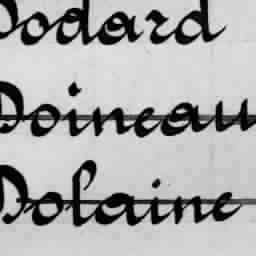 Dodard
Doineau
Dolaine